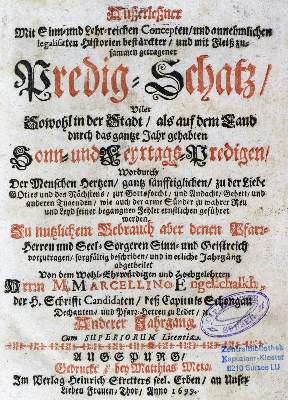 Außerleßner
Mit Sinn- und Lehr-reichen Concepten/ und annehmlichen
Historien bestärckter/ und mit Fleiß zu-
sammen getragener
Predig-Schatz/
Aller
Sowohl in der Stadt/ als auf dem Land
durch das gantze Jahr gehabten
Sonn- und Feyrtags-Predigen/
Wordurch
Der Menschen Hertzen/ gantz künfftiglichen/ zu der Liebe
GOttes und des Nächstens/ zur Gottsforcht/ und Andacht/ Gebett/ und
anderen Tugenden/ wie auch der arme Sünder zu wahrer Reu
und Leyd seiner begangnen Fehler ernstlichen geführet
werden.
Zu nutzlichem Gebrauch aber denen Pfarr-
Herren und Seel-Sorgeren Sinn- und Geistreich
vorzutragen/ sorgfältig beschriben/ und in etliche Jahrgäng
abgetheilet
Von dem Wohl-Ehrwürdigen und Hochgelehrten
Herrn M. MARCELLINO Engelschalkh,
der H. Schrifft Candidaten/ deß Capituls Schongau
Dechanten/ und Pfarr-Herren zu Leder/ &c.
Anderer Jahrgang.
Cum SUPERIORUM Licentia.
AUGSPURG/
Gedruckt/ bey Matthias Meta.
Im Verlag Heinrich Stretters seel. Erben/ an Unser
Lieben Frauen-Thor/ Anno 1699.
Zentralbibliothek
Kapuziner-Kloster
6210 Sursee LU